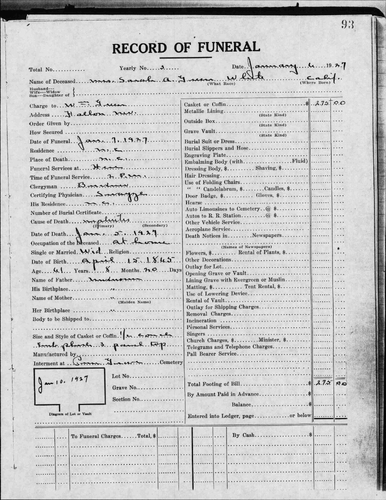 93
RECORD OF FUNERAL
Total No. Yearly No. 2 Date January 6 1927
Name of Deceased Mrs. Sarah A. White Calif.
Husband— Wife—Widow Son—Daughter of (What Race) (Where Born)
Charge to W
Address Fallon Nev.
Order Given by
How Secured
Date of Funeral Jan. 7, 1927
Residence
Place of Death
Funeral Services at
Time of Funeral Service 2 P.M.
Clergyman
Certifying Physician
His Residence
Number of Burial Certificate
Cause of Death
(Primary) (Secondary)
Date of Death Jan. 5. 1927
Occupation of the Deceased at home
Single or Married Wid Religion
Date of Birth April 15 1845
Age 81 Years 8 Months 20 Days
Name of Father unknown
His Birthplace
Name of Mother
(Maiden Name)
Her Birthplace
Body to be Shipped to
Size and Style of Casket or Coffin
plush panel top
Manufactured by
Interment at Cemetery
Jan 10. 1927
Lot No.
Grave No.
Section No.
Diagram of Lot or Vault
Casket or Coffin $ 275 00
Metallic Lining
(State Kind)
Outside Box
(State Kind)
Grave Vault
(State Kind)
Burial Suit or Dress
Burial Slippers and Hose
Engraving Plate
Embalming Body (with Fluid)
Dressing Body, $ Shaving, $
Hair Dressing
Use of Folding Chairs
" " Candelabrum, $ Candles, $
Door Badge, $ Gloves, $
Hearse
Auto Limousines to Cemetery @ $
Autos to R. R. Station @ $
Other Vehicle Service
Aeroplane Service
Death Notices in Newspapers
(Names of Newspapers)
Flowers, $ Rental of Plants, $
Other Decorations
Outlay for Lot
Opening Grave or Vault
Lining Grave with Evergreen or Muslin
Matting, $ Tent Rental, $
Use of Lowering Device
Rental of Vault
Outlay for Shipping Charges
Removal Charges
Incineration
Personal Services
Singers
Church Charges, $ Minister, $
Telegrams and Telephone Charges
Pall Bearer Service
Total Footing of Bill $ 275 00
By Amount Paid in Advance
Balance
Entered into Ledger, page or below $
To Funeral Charges $
By Cash $